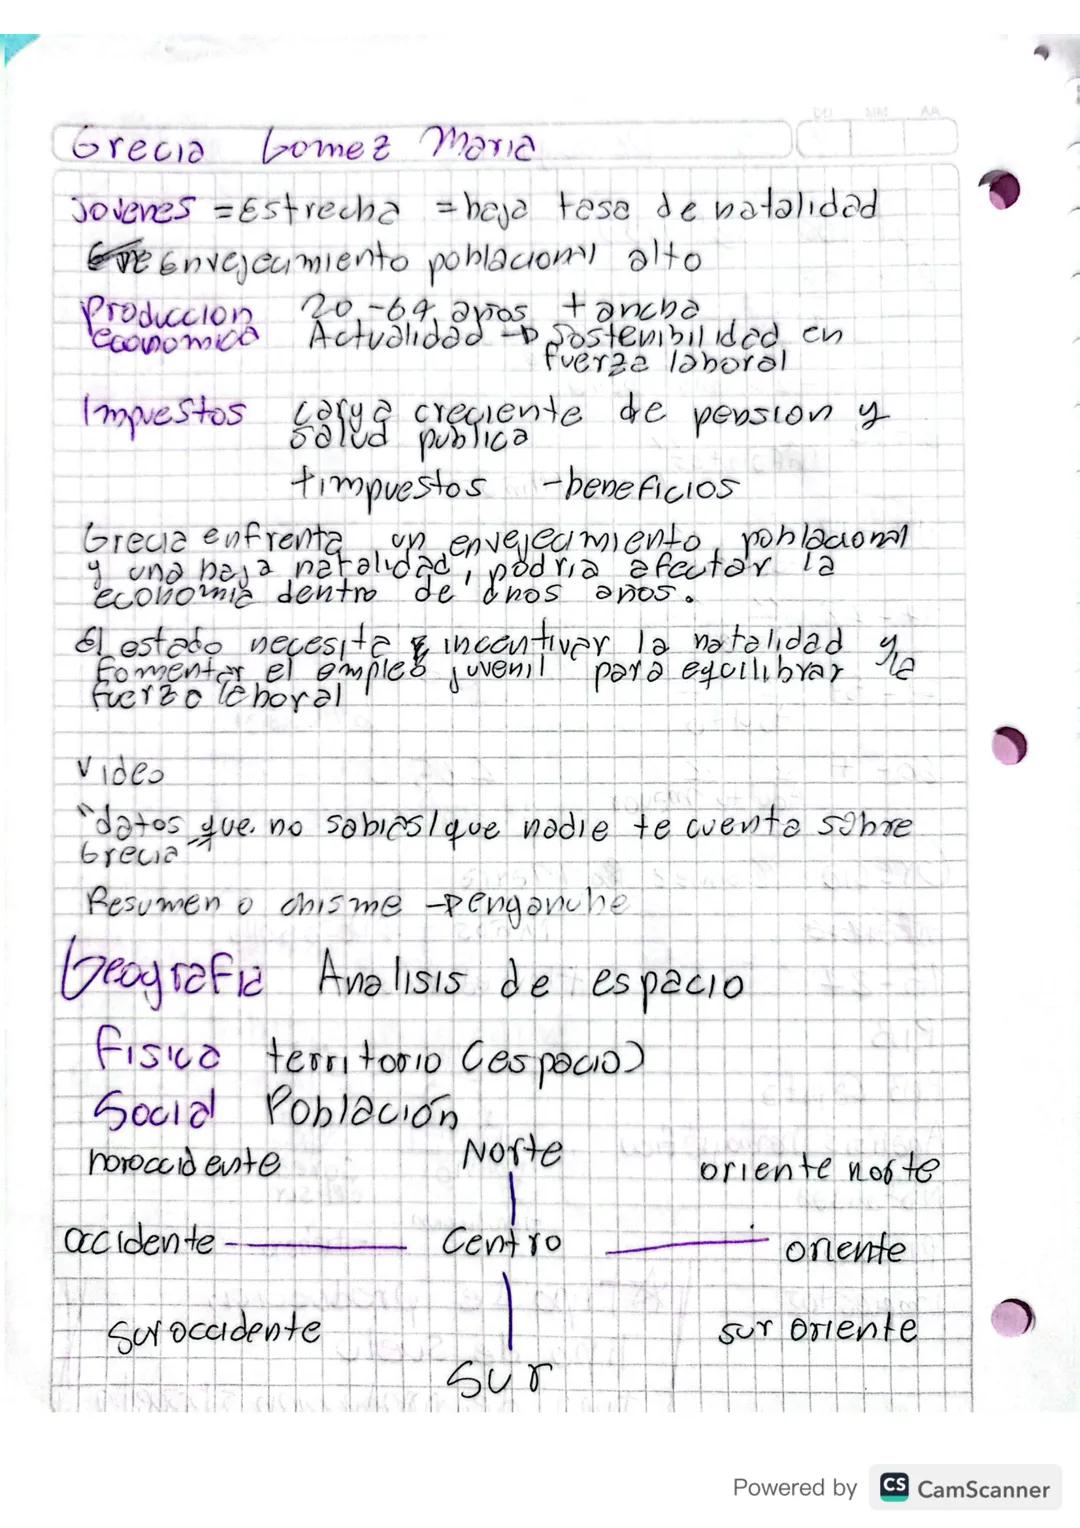 Grecia Gomez Maria
Jovenes = Estrecha = baja tasa de natalidad
Envejecimiento poblacional alto
Produccion 20-64 años + ancha
economica Actualidad → Sostenibilidad en
fuerza laboral
Impuestos carga creciente de pension y
salud publica
+impuestos -beneficios
Grecia enfrenta un envejecimiento poblacional
y una baja natalidad, podria afectar la
economia dentro de unos años.
El estado necesita incentivar la natalidad y
Fomentar el empleo juvenil para equilibrar la
fuerza laboral
Video
"datos que no sabias/que nadie te cuenta sobre
Grecia"
Resumen o chisme → enganche
Geografia Analisis de espacio
Fisica territorio (espacio)
Social Población
noroccidente Norte oriente norte
occidente Centro oriente
suroccidente sur oriente
Sur
Powered by CS CamScanner